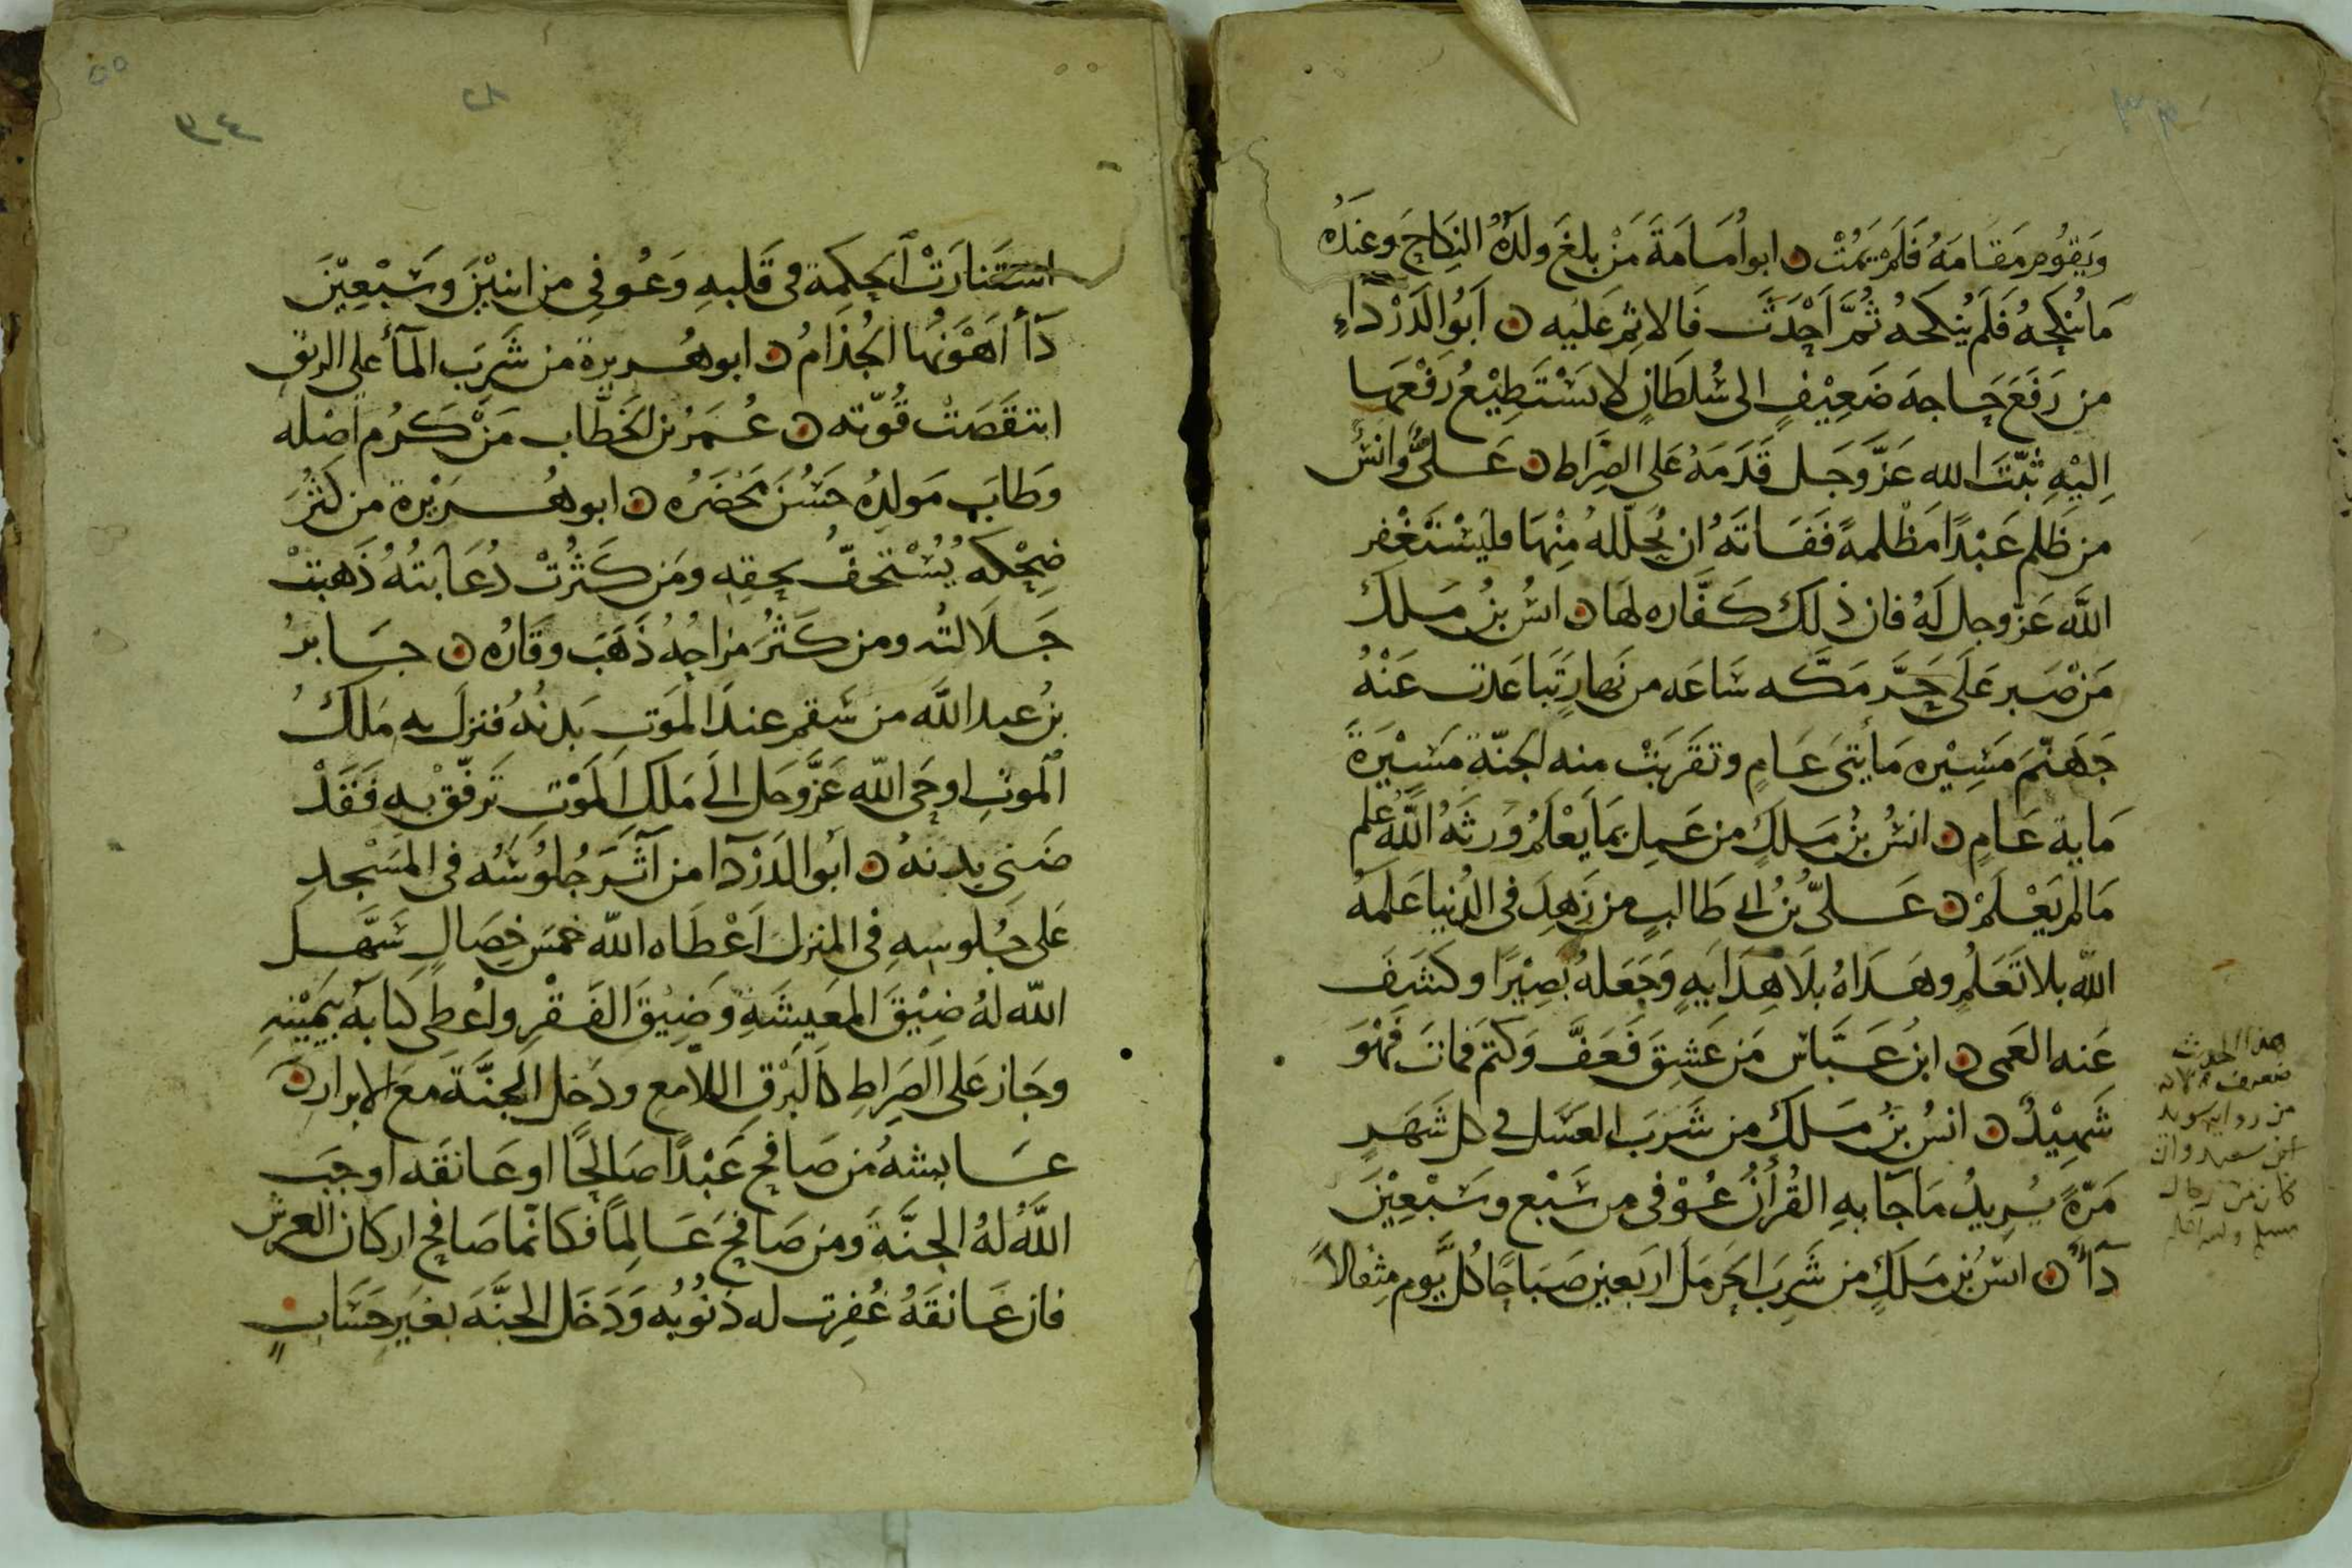 ويقوم مَقَامَهُ فَلَمْ يَمُتْ ن ابو اُمَامَةَ مَنْ بلغَ ولَدُهُ النِكاحَ وعندَهُ
مَا يُنكِحُهُ فَلَم يُنكحهُ ثُمَّ اَحْدَثَ فَالاثِمُ عَلَيه ن اَبُو الدَرْدَاءِ
من رَفَعَ حَاجهَ ضَعِيْفٍ الى سُلطَانٍ لَا يَسْتَطِيْعُ رَفْعَهَا
اِلَيْهِ ثبَّتَ الله عَزَّ وَجَل قَدَمَهُ عَلى الصِرَاط ن عَلىٌّ وانسٌ
من ظَلَم عَبْدًا مَظْلمةً فَفَاتَهُ ان يُحَلّلهُ مِنْهَا فليَسْتَغْفِر
اللَّه عَزّ وجل لَهُ فان ذلكَ كَفَّاره لهَا ن انسُ بنُ مَلك
مَنْ صَبر عَلَى حَرِّ مَكّه سَاعَه من نَهارٍ تَبَاعَدت عَنْهُ
جَهَنّمَ مَسِيْره مَأيتَى عَامٍ وتقَرّبَتْ منه الجَنّة مَسِيْرَةَ
مَاية عَامٍ ن انسُ بنُ مَلكٍ من عَمِلَ بمَا يَعْلَمُ وَرثهُ اللَّهُ عِلم
مَا لم يَعْلَمْ ن عَلىّ بنُ ابى طَالبٍ من زَهِدَ فى الدُنيا عَلمَهُ
اللّه بلا تَعَلُمٍ وهَدَاهُ بلَا هِدَايَهٍ وَجَعَلهُ بَصِيْرًا وكَشَفَ
عَنه العَمى ن ابن عَبَّاس مَن عَشِقَ فَعَفَّ وَكتَمَ فمَاتَ فَهْوَ
شَهِيْدٌ ن انسُ بنُ مَلك من شَرَبَ العسَل فى كل شَهَرٍ
مَرّةً يُرِيدُ مَا جآ بهِ القُرأنُ عُوْفى من سَبْعٍ وسَبْعِيْنَ
دَآءً ن انسُ بن مَلَكٍ من شَرِبَ الحَرمَلَ اربَعين صَبَاحًا كُلَّ يَوم مثقالاً
هذا الحديث
ضعيف لانه
من رواية سويد
ابن سعيد وان
كان من رجال
مسلم
استَنَارَتْ الحِكمَة فى قَلبهِ وَعُوفِى من اثنيْنَ وَسَبْعِيْنَ
دَآءً اَهْوَنُهَا الجُذَامُ ن ابو هُريرة من شَرِبَ المَآءَ على الريق
انتقَصَتْ قُوّته ن عُمَرُ بن الخَطّاب مَنْ كَرُم اَصْله
وَطَابَ مَولِدُهُ حَسُنَ مَحْضَرُه ن ابو هُرَيْرة من كَثُرَ
ضِحْكه يُسْتخفّ بحقِه ومَن كَثُرَتْ دُعَابَتُهُ ذَهَبَتْ
جَلَالتُه ومن كَثُرَ مزاحُهُ ذَهَبَ وقَارُه ن جَابرُ
بنُ عبد اللَّه من سَقم عندَ المَوتِ بَدنُهُ فنزلَ به مَلكُ
الموتِ اوحَى اللّه عَزّ وَجَل الَى مَلَك المَوْتِ تَرفّقْ بهِ فَقَدْ
ضَنِى بدنهُ ن ابو الدَرْدَآ من آثَرَ جُلُوسُه فى المَسْجدِ
عَلى جُلوسِهِ فى المنزل اَعْطَاه اللّه خمسَ خِصَالٍ سَهَّل
اللّه لهُ ضِيْقَ المَعيشَةِ وَضِيْقَ الفَقْرِ واُعطى كتابهُ بيَمِيْنهِ
وجَازَ عَلى الصِرَاطِ كَالبَرْق اللامع ودَخل الجنَّةَ معَ الابرار ن
عَايشهُ مَن صَافح عَبْدًا صَالِحًا او عَانقَه اوجَبَ
اللَّهُ لهُ الجنَّةَ وَمَن صَافحَ عَالِمًا فكَانّما صَافح اركان العرش
فان عَانقَهُ غُفِرت له ذنُوبُه وَدَخَل الجنَّهَ بغيرِ حِسَابٍ